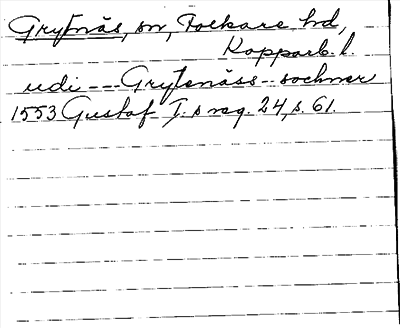 Grytnäs, sn, Folkare hd,
Kopparb. l.
udi --- Grytenäss - sochner
1553 Gustaf I:s reg. 24, s. 61.